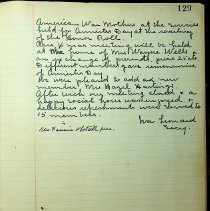 129
American War Mothers at the services
held for Armistice Day at the reciting
of the Honor Roll.
Our X year meeting will be held
at the home of Mrs. Wayne Wells
an exchange of presents, price 25¢ etc.
Different members gave remembrance
of Armistice Day.
We were pleased to add a new
member, Mrs. Hazel Hastings.
After which our meeting closed & a
happy social hour was enjoyed &
delicious refreshments were served to
15 members.
Mrs. Leonard
Secy.
Mrs Fannie